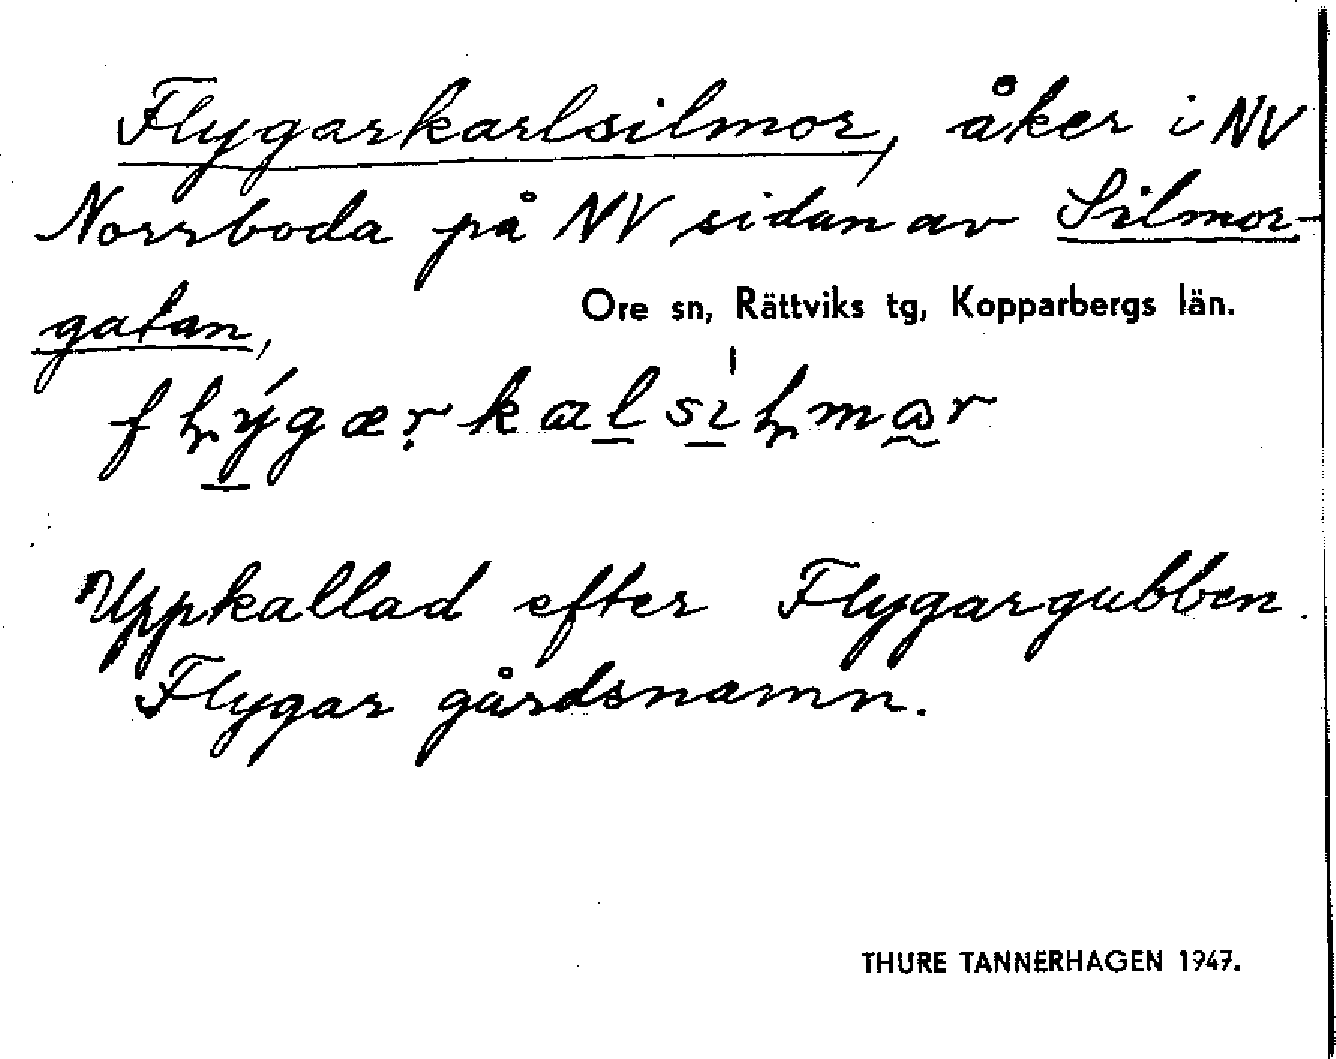 Flygarkarlsilmor, åker i NV
Norrboda på NV sidan av Silmor-
gatan,
Ore sn, Rättviks tg, Kopparbergs län.
Uppkallad efter Flygargubben.
Flygar gårdsnamn.
THURE TANNERHAGEN 1947.